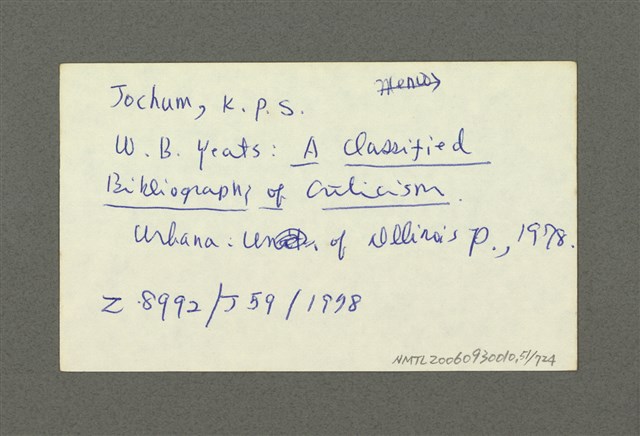 Jochum, K. P. S.
W. B. Yeats: A Classified
Bibliography of Criticism.
Urbana: Un. of Illinois P., 1978.
Z 8992/J59/1978
NMTL20060930010,51/724